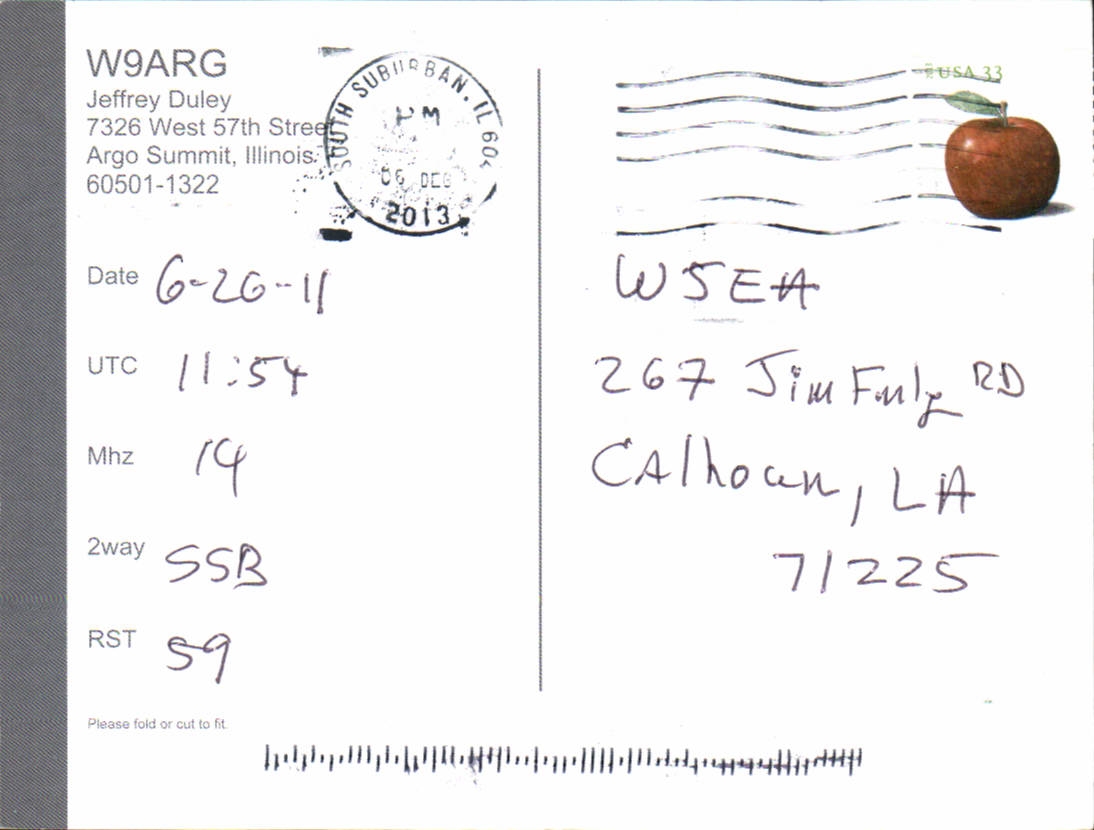 W9ARG
Jeffrey Duley
7326 West 57th Street
Argo Summit, Illinois.
60501-1322
SOUTH SUBURBAN, IL 604
PM
06 DEC
2013
USA 33
Date 6-26-11
UTC 11:54
Mhz 14
2way SSB
RST 59
Please fold or cut to fit.
W5EA
267 Jim RD
CAlhoun, LA
71225